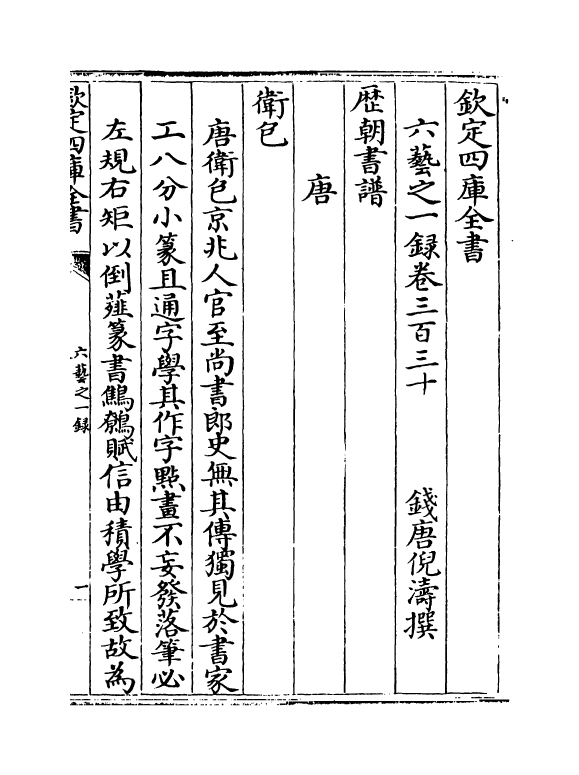 欽定四庫全書
六藝之一録卷三百三十
錢唐倪濤撰
歴朝書譜
唐
衛包
唐衛包京兆人官至尚書郎史無其傳獨見於書家
工八分小篆且通字學其作字㸃畫不妄發落筆必
左規右矩以倒薤篆書鷦鷯賦信由積學所致故為
欽定四庫全書
六藝之一録
一